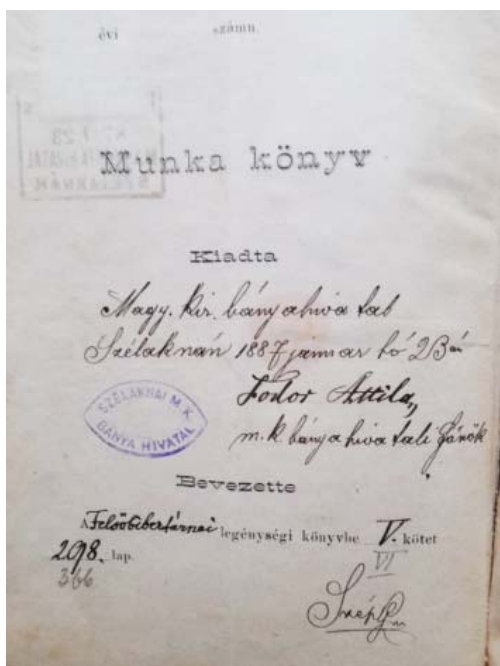 évi számn.
Munka könyv
Kiadta
Magy. kir. bányahivatal
Szélaknán 1887 január hó 23án
Fodor Attila,
m. k. bányahivatali főnök
SZÉLAKNAI M. K.
BÁNYA HIVATAL
Bevezette
A Felsőbibertárnai legénységi könyvbe V. kötet
VI
208. lap.
366